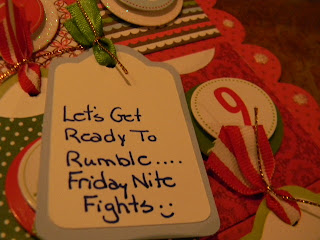 Let's Get
Ready To
Rumble....
Friday Nite
Fights :)
9